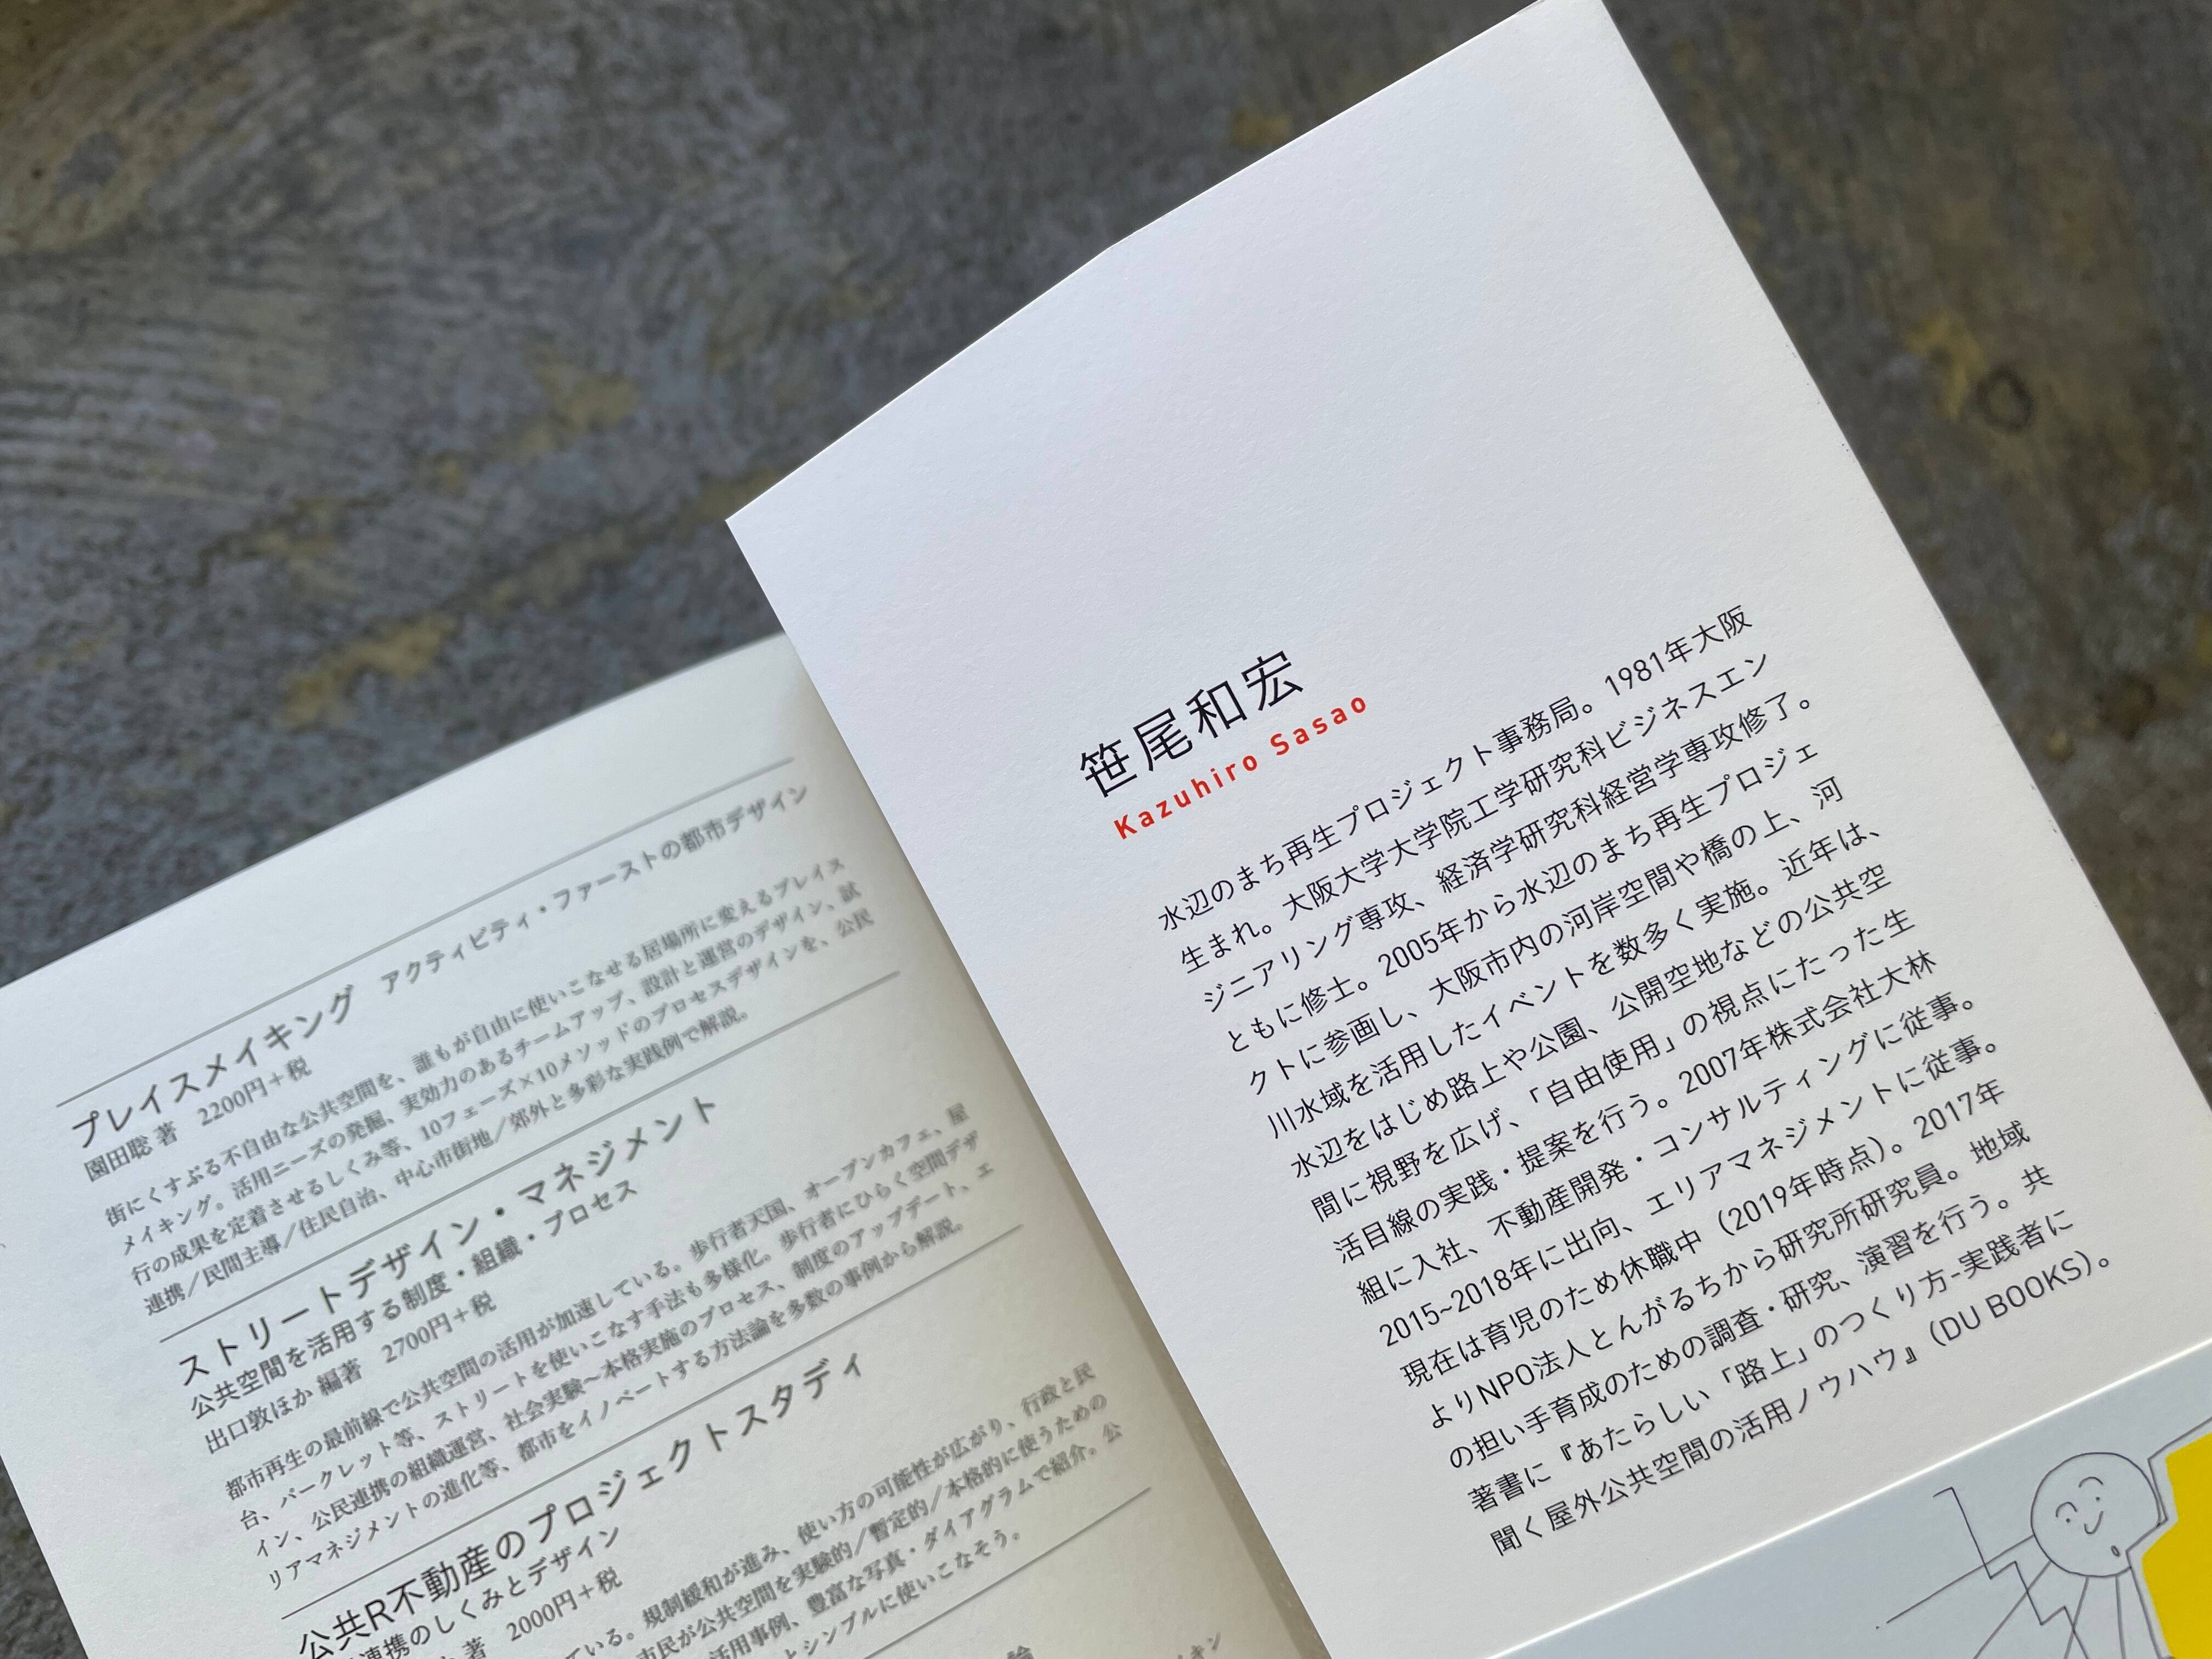 プレイスメイキング アクティビティ・ファーストの都市デザイン
園田聡 著 2200円＋税
街にくすぶる不自由な公共空間を、誰もが自由に使いこなせる居場所に変えるプレイス
メイキング。活用ニーズの発掘、実効力のあるチームアップ、設計と運営のデザイン、試
行の成果を定着させるしくみ等、10フェーズ×10メソッドのプロセスデザインを、公民
連携／民間主導／住民自治、中心市街地／郊外と多彩な実践例で解説。
ストリートデザイン・マネジメント
公共空間を活用する制度・組織・プロセス
出口敦ほか 編著 2700円＋税
都市再生の最前線で公共空間の活用が加速している。歩行者天国、オープンカフェ、屋
台、パークレット等、ストリートを使いこなす手法も多様化。歩行者にひらく空間デザ
イン、公民連携の組織運営、社会実験〜本格実施のプロセス、制度のアップデート、エ
リアマネジメントの進化等、都市をイノベートする方法論を多数の事例から解説。
公共R不動産のプロジェクトスタディ
連携のしくみとデザイン
著 2000円＋税
ている。規制緩和が進み、使い方の可能性が広がり、行政と民
市民が公共空間を実験的／暫定的／本格的に使うための
活用事例、豊富な写真・ダイアグラムで紹介。公
とシンプルに使いこなそう。
笹尾和宏
Kazuhiro Sasao
水辺のまち再生プロジェクト事務局。1981年大阪
生まれ。大阪大学大学院工学研究科ビジネスエン
ジニアリング専攻、経済学研究科経営学専攻修了。
ともに修士。2005年から水辺のまち再生プロジェ
クトに参画し、大阪市内の河岸空間や橋の上、河
川水域を活用したイベントを数多く実施。近年は、
水辺をはじめ路上や公園、公開空地などの公共空
間に視野を広げ、「自由使用」の視点にたった生
活目線の実践・提案を行う。2007年株式会社大林
組に入社、不動産開発・コンサルティングに従事。
2015~2018年に出向、エリアマネジメントに従事。
現在は育児のため休職中（2019年時点）。2017年
よりNPO法人とんがるちから研究所研究員。地域
の担い手育成のための調査・研究、演習を行う。共
著書に『あたらしい「路上」のつくり方-実践者に
聞く屋外公共空間の活用ノウハウ』（DU BOOKS）。